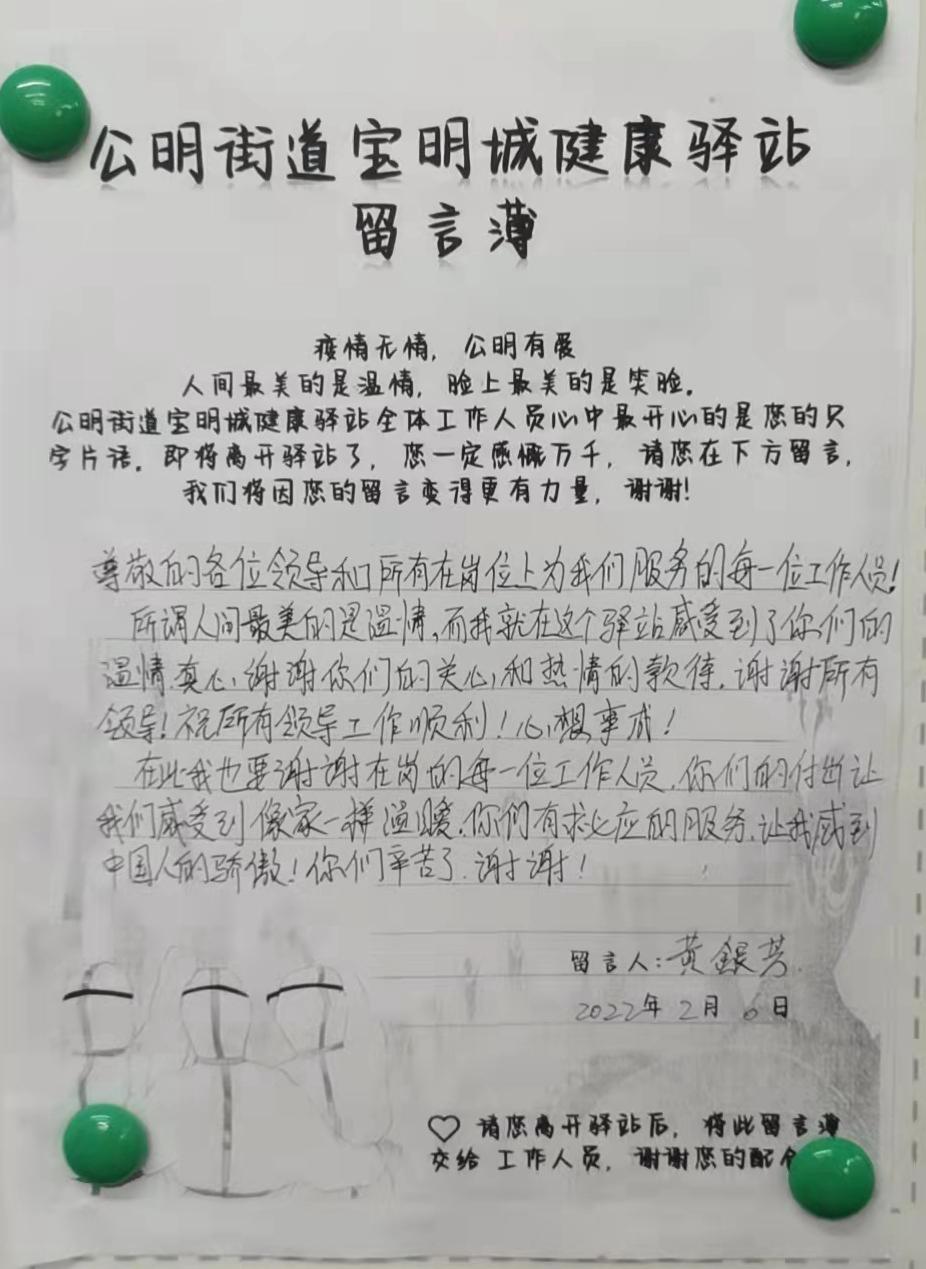 公明街道宝明城健康驿站
留言薄
疫情无情，公明有爱
人间最美的是温情，脸上最美的是笑脸。
公明街道宝明城健康驿站全体工作人员心中最开心的是您的只
字片语。即将离开驿站了，您一定感慨万千，请您在下方留言，
我们将因您的留言变得更有力量，谢谢！
尊敬的各位领导和所有在岗位上为我们服务的每一位工作人员！
所谓人间最美的是温情，而我就在这个驿站感受到了你们的
温情.真心谢谢你们的关心和热情的款待.谢谢所有
领导！祝所有领导工作顺利！心想事成！
在此我也要谢谢在岗的每一位工作人员.你们的付出让
我们感受到像家一样温暖.你们有求必应的服务.让我感到
中国人的骄傲！你们辛苦了.谢谢！
留言人：黄银芳.
2022年2月6日
♡ 请您离开驿站后，将此留言薄
交给工作人员，谢谢您的配